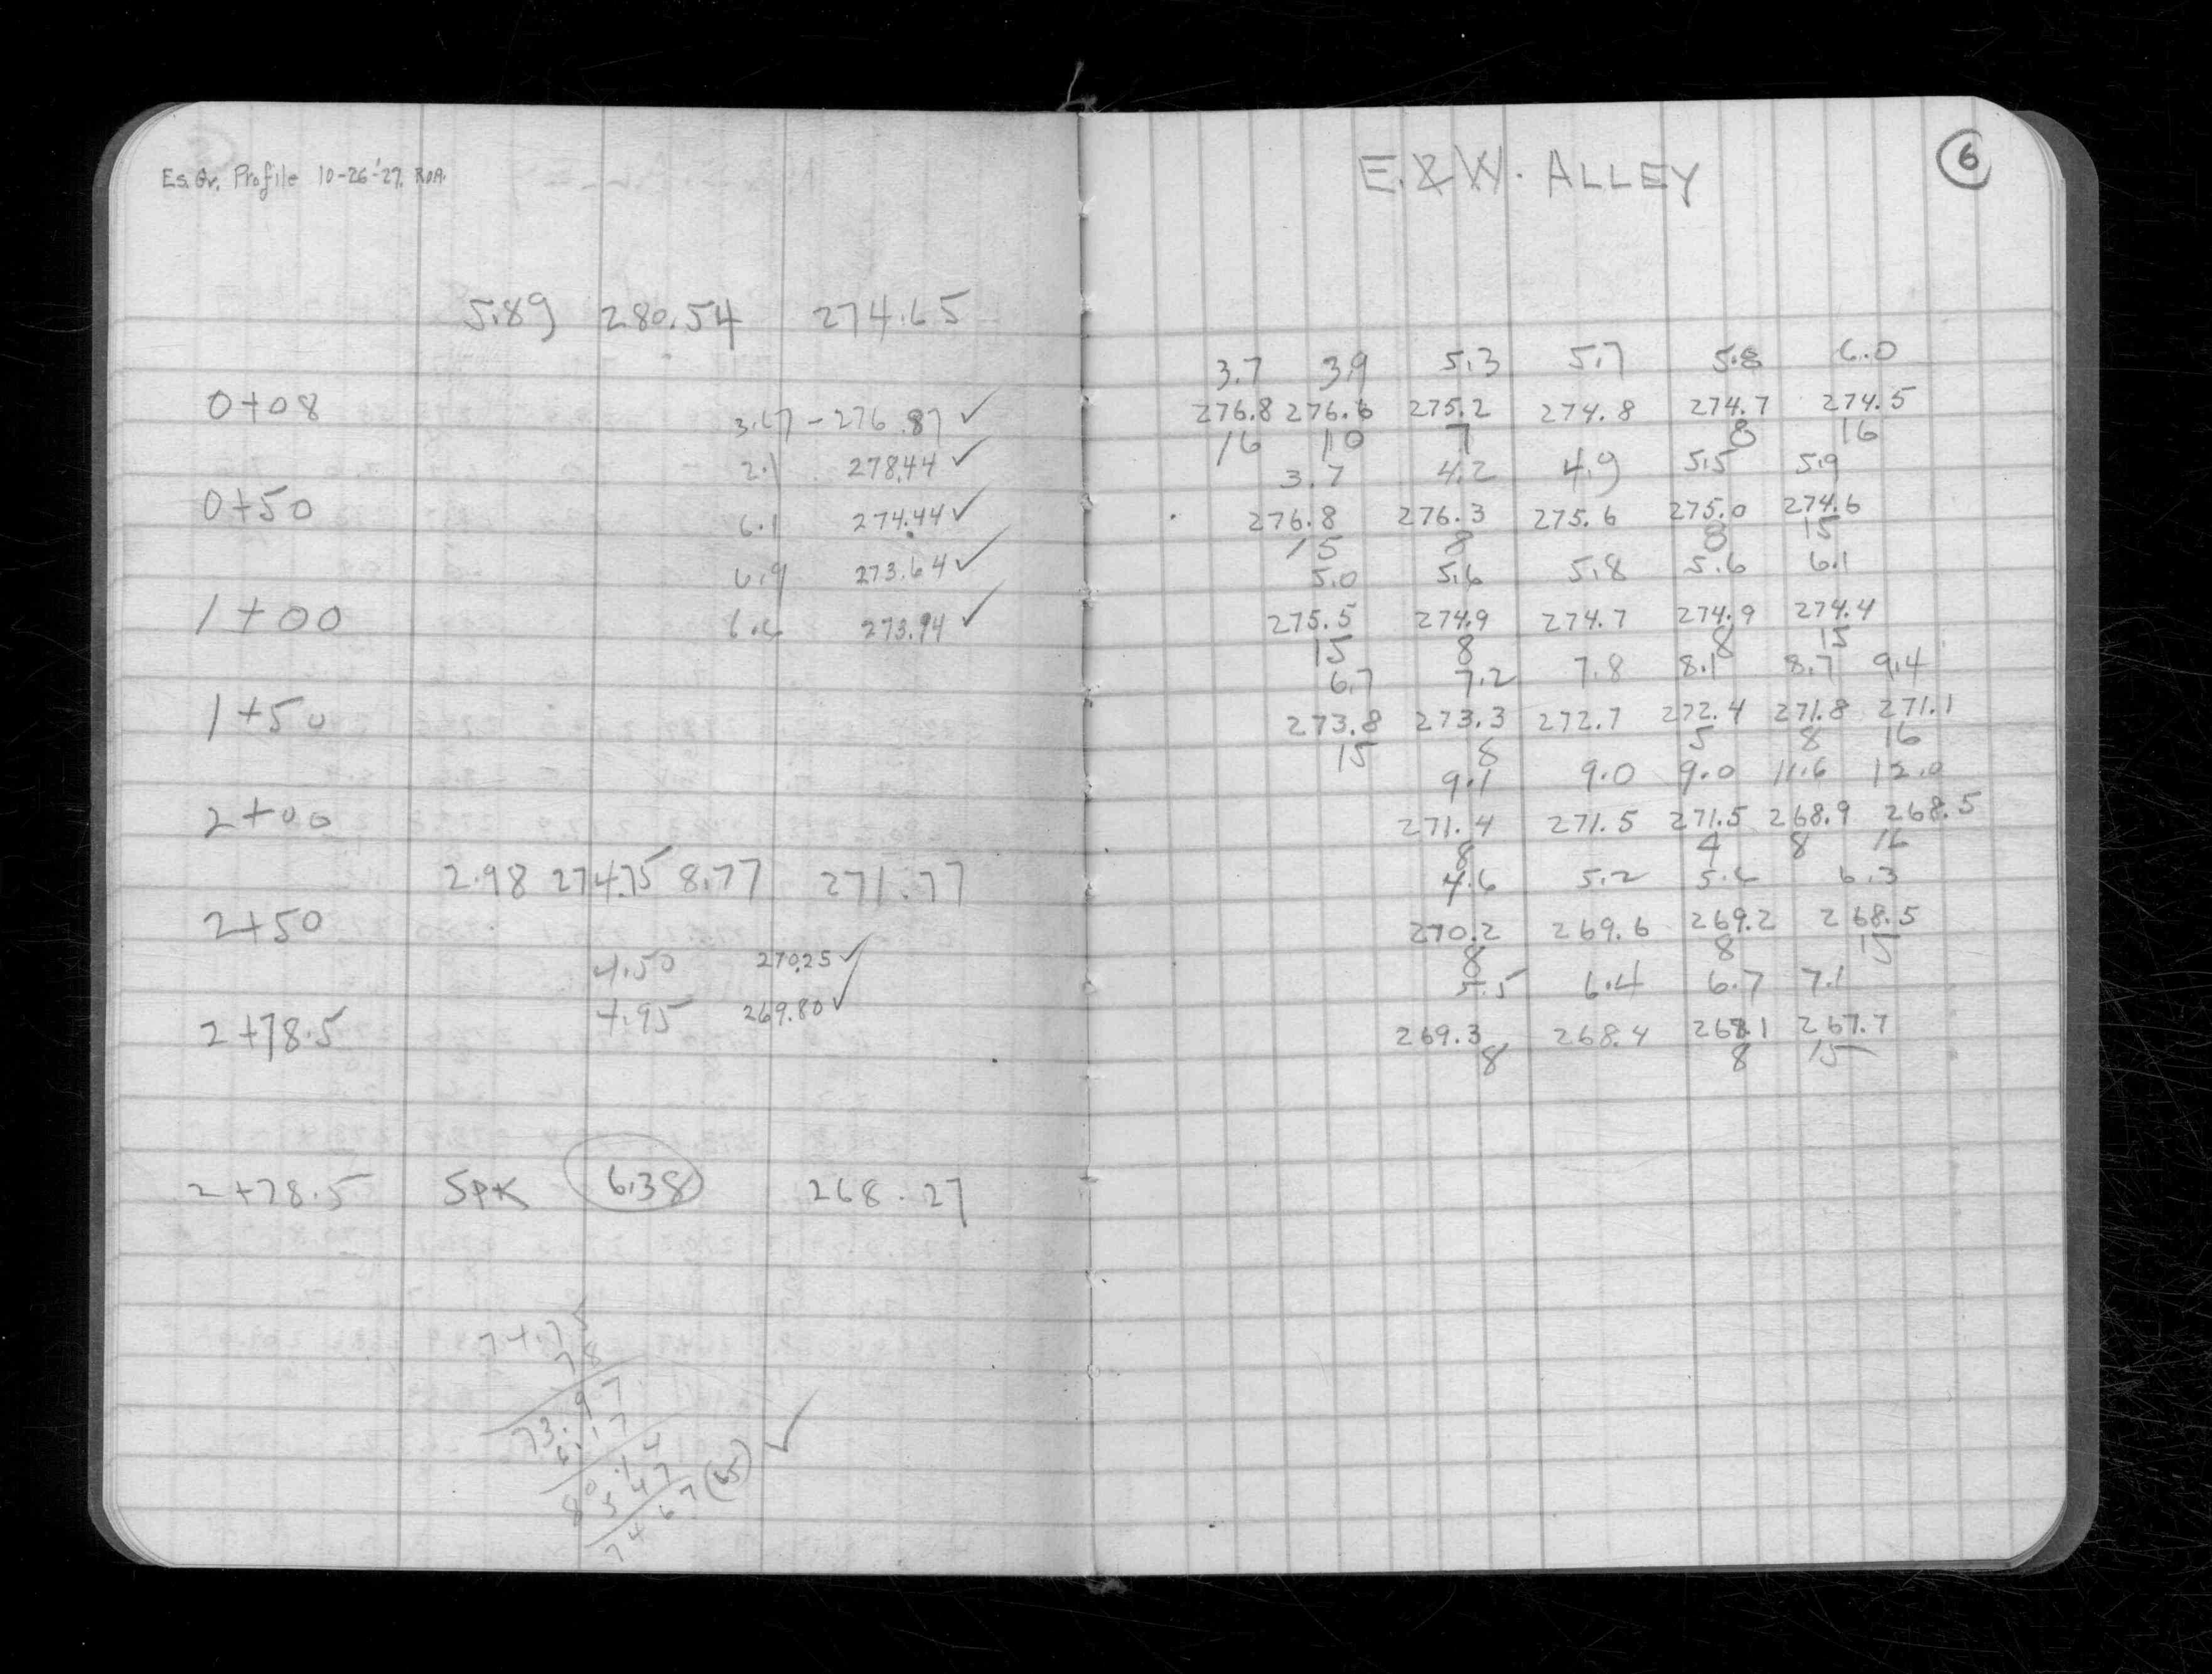 Es. Gr. Profile 10-26-'27. R.O.A.
5.89 280.54 274.65
0+08
3.67 - 276.87 ✓
2.1 278.44 ✓
0+50
6.1 274.44 ✓
6.9 273.64 ✓
1+00
6.6 273.94 ✓
1+50
2+00
2.98 274.75 8.77 271.77
2+50
4.50 270.25 ✓
4.95 269.80 ✓
2+78.5
2+78.5 SPK 6.38 268.27
74.75
78
73.97
6.17
80.14
5 47
74 67 (65) ✓
E. & W. ALLEY
6
3.7 3.9 5.3 5.7 5.8 6.0
276.8 276.6 275.2 274.8 274.7 274.5
16 10 7 8 16
3.7 4.2 4.9 5.5 5.9
276.8 276.3 275.6 275.0 274.6
15 8 8 15
5.0 5.6 5.8 5.6 6.1
275.5 274.9 274.7 274.9 274.4
15 8 8 15
6.7 7.2 7.8 8.1 8.7 9.4
273.8 273.3 272.7 272.4 271.8 271.1
15 8 5 8 16
9.1 9.0 9.0 11.6 12.0
271.4 271.5 271.5 268.9 268.5
8 4 8 16
4.6 5.2 5.6 6.3
270.2 269.6 269.2 268.5
8 8 15
5.5 6.4 6.7 7.1
269.3 268.4 268.1 267.7
8 8 15